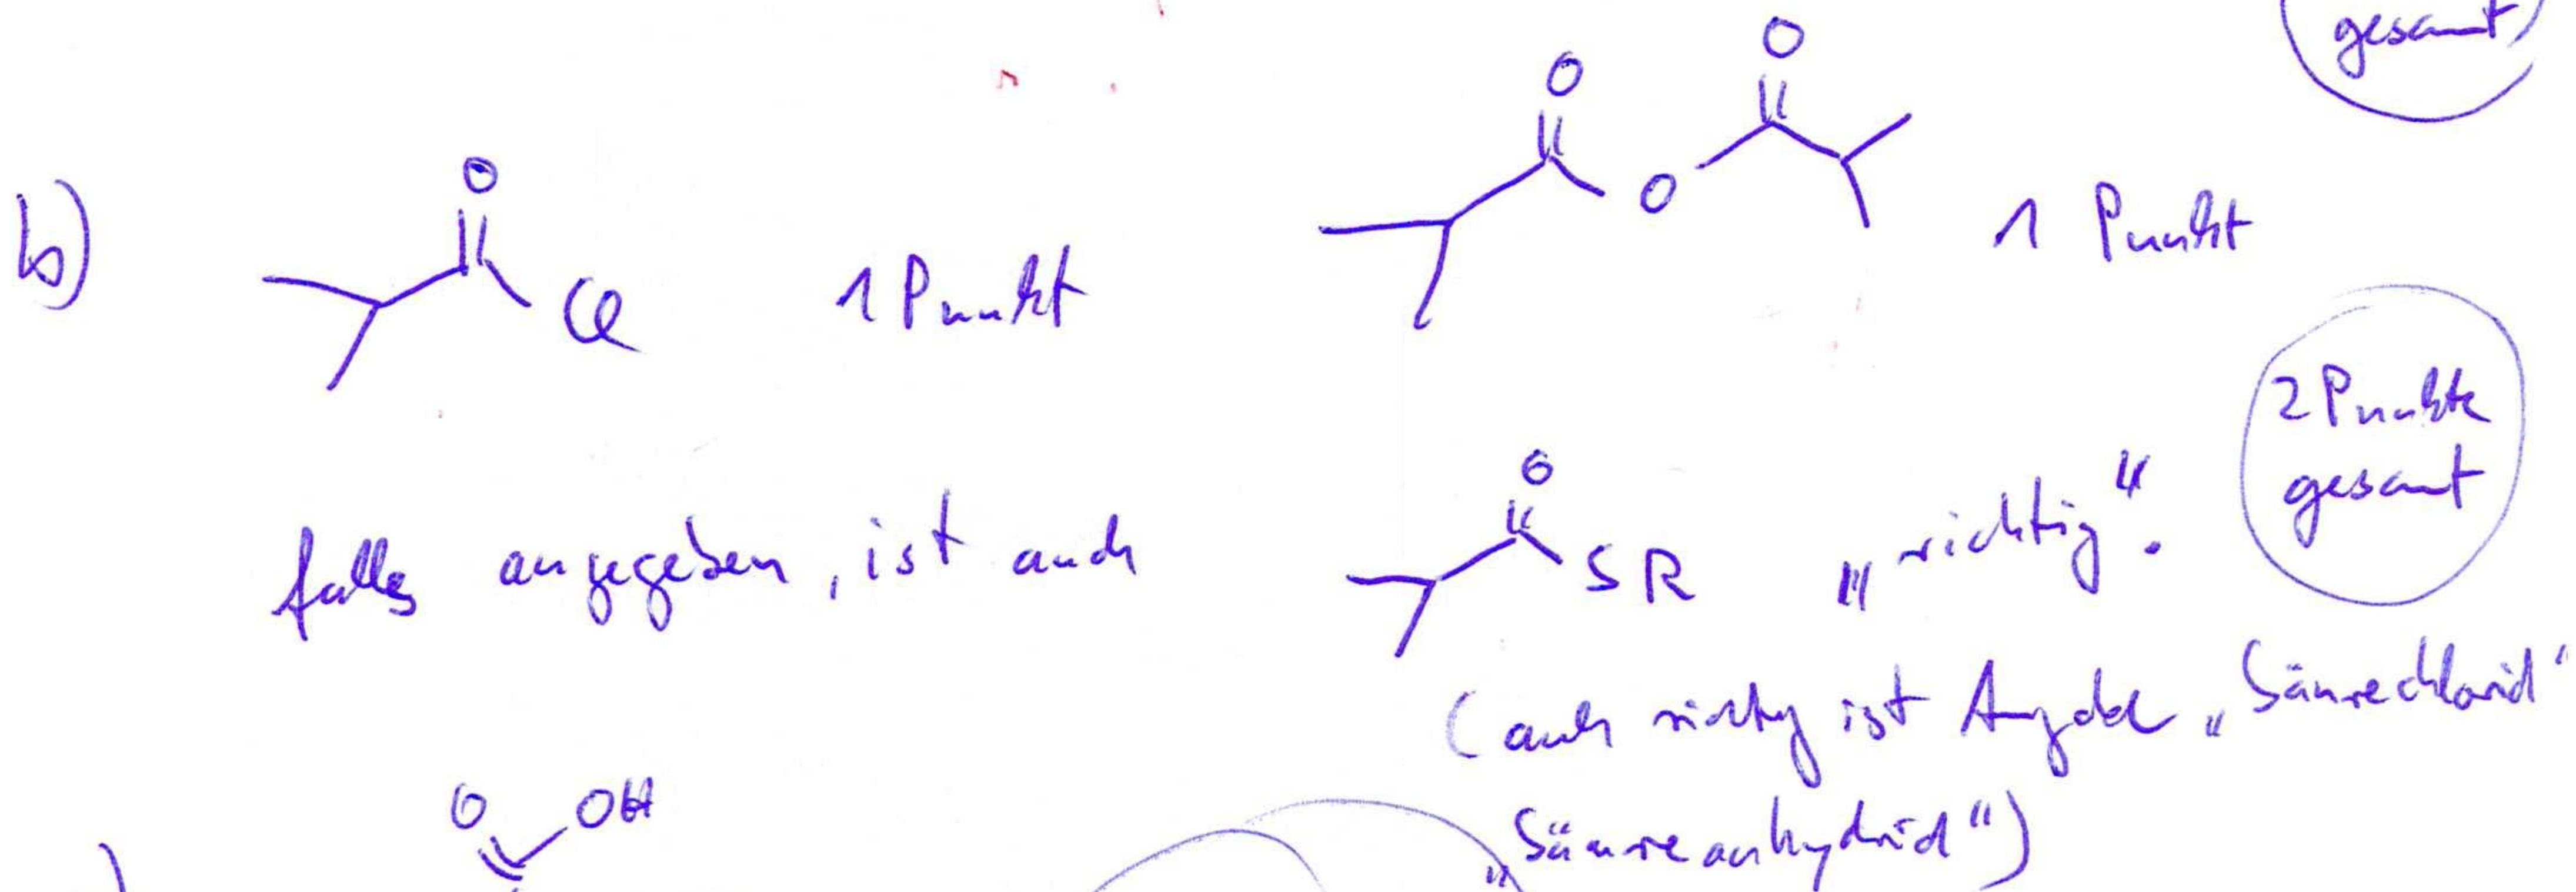 gesamt
O O
b) O
Cl 1 Punkt
O 1 Punkt
2 Punkte
gesamt
O
falls angegeben, ist auch SR „richtig".
(auch richtig ist Angabe „Säurechlorid"
„Säureanhydrid")
O OH
)